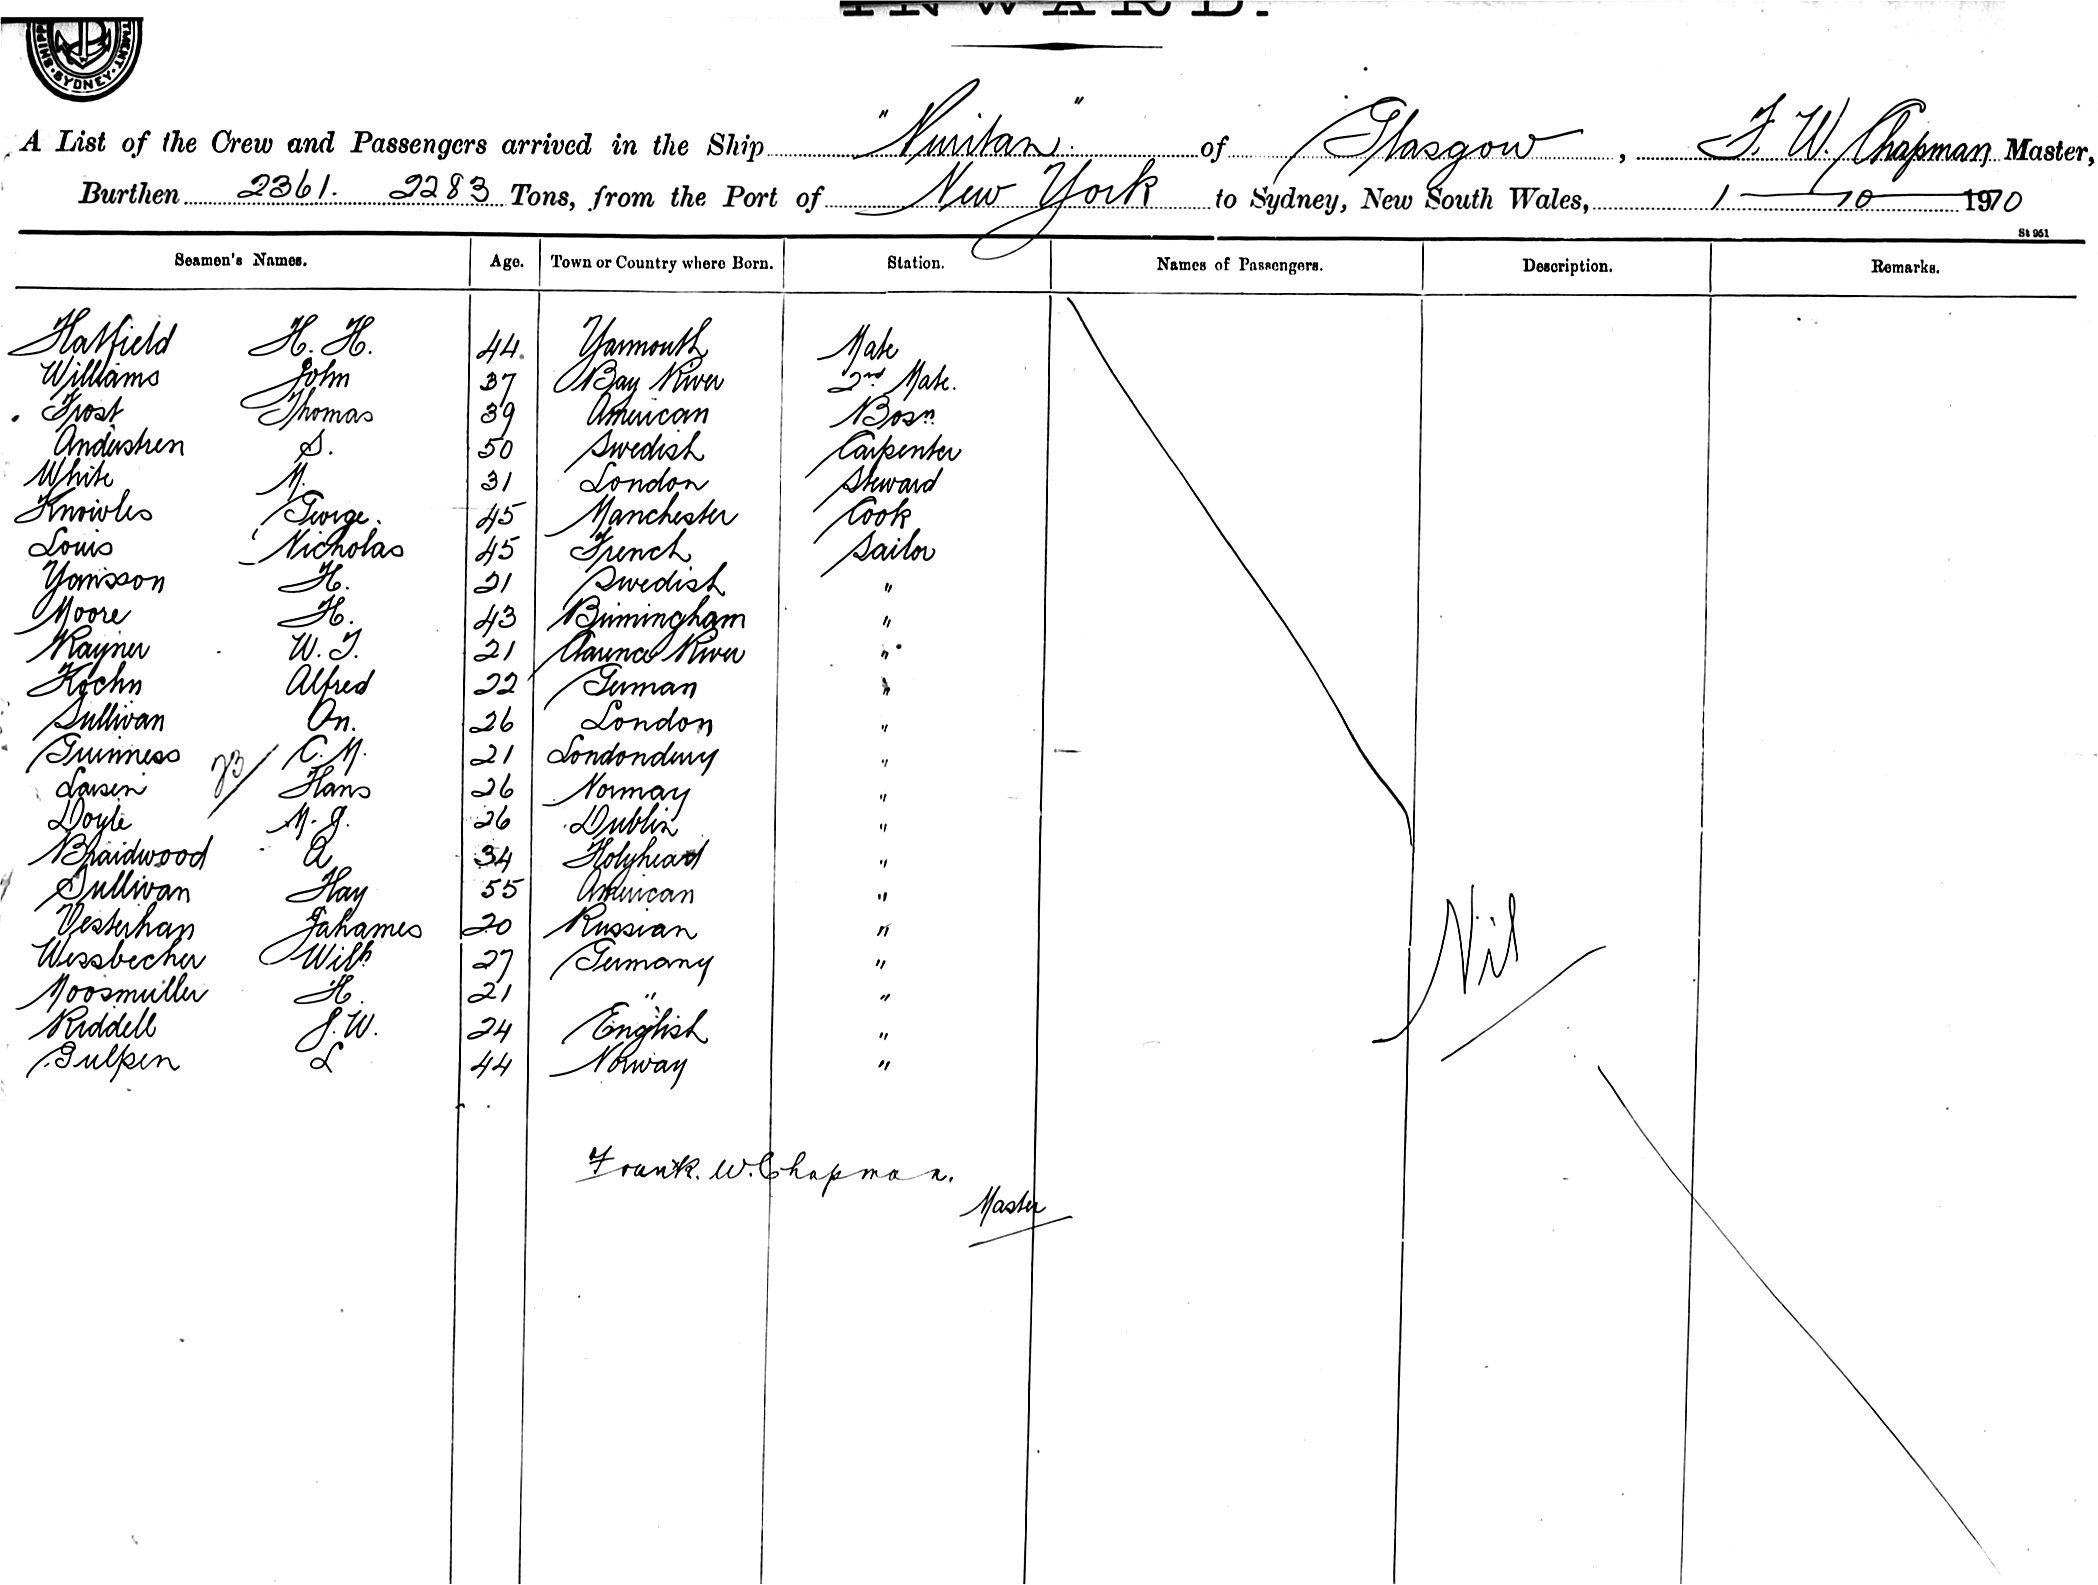 INWARD.
SHIPP · SYDNEY · TMENT
A List of the Crew and Passengers arrived in the Ship "Puritan" of Glasgow, F. W. Chapman Master,
Burthen 2361. 2283 Tons, from the Port of New York to Sydney, New South Wales, 1 — 10 1910
St 961
Seamen's Names. Age. Town or Country where Born. Station. Names of Passengers. Description. Remarks.
Hatfield H. H. 44 Yarmouth Mate
Williams John 37 Bay River 2nd Mate.
Frost Thomas 39 American Bosn
Anderstren S. 50 Swedish Carpenter
White M. 31 London Steward
Knowles George. 45 Manchester Cook
Louis Nicholas 45 French Sailor
Yansson H. 21 Swedish "
Moore H. 43 Birmingham "
Rayner W. T. 21 Clarence River "
Kochn Alfred 22 German "
Sullivan On. 26 London "
Guinness C. M. 21 Londonderry "
23
Larsen Hans 26 Norway "
Doyle M. J. 26 Dublin "
Braidwood A 34 Holyhead "
Sullivan Hay 55 American "
Vesterhan Jahames 20 Russian "
Wessbecher Wilh 27 Germany "
Moosmuller H. 21 " "
Riddell J. W. 24 English "
Gulpen L 44 Norway "
Nil
Frank. W. Chapman.
Master